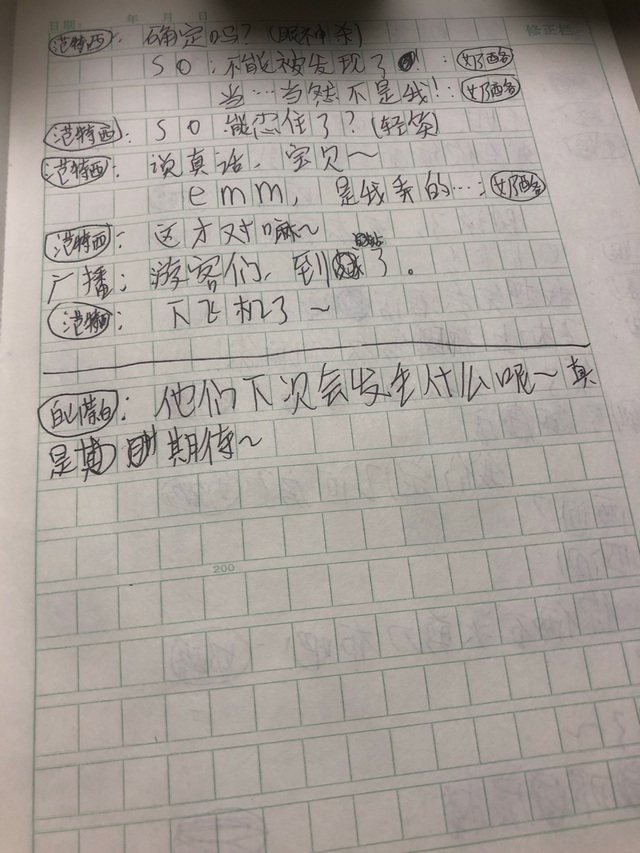 日期： 年 月 日 修正栏
范特西：确定吗？（眼神杀）
SO，不能被发现了！：奶酪
当…当然不是我！：奶酪
范特西：SO 能忍住了？（轻笑）
范特西：说真话，宝贝～
emm，是我弄的…：奶酪
范特西：这才对嘛～
广播：游客们，到了。
范特西：下飞机了～
白：他们下次会发生什么呢～真
是期待～
200